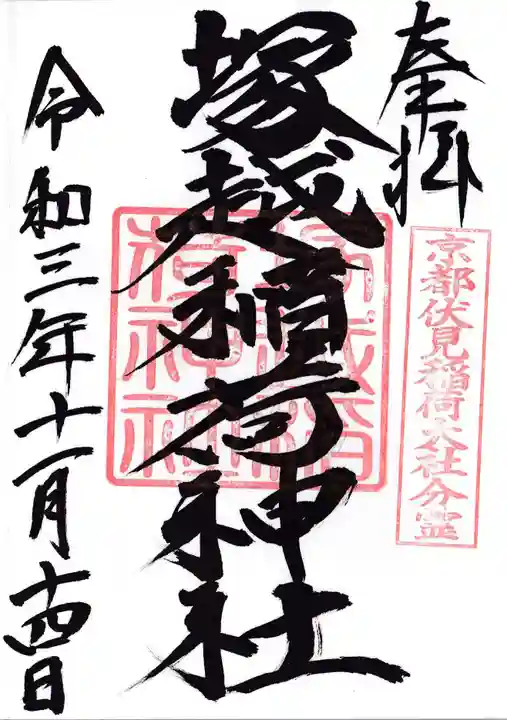 奉拝
京都伏見稲荷大社分霊
塚越稲荷神社
令和三年十一月十四日